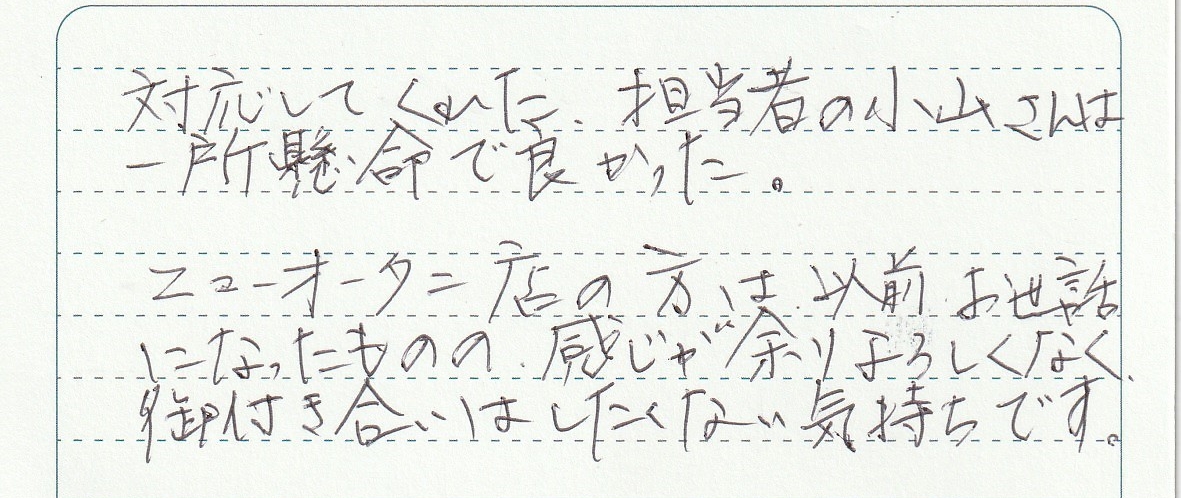 対応してくれた、担当者の小山さんは
一所懸命で良かった。
ニューオータニ店の方は、以前お世話
になったものの、感じが余りよろしくなく、
御付き合いはしたくない気持ちです。